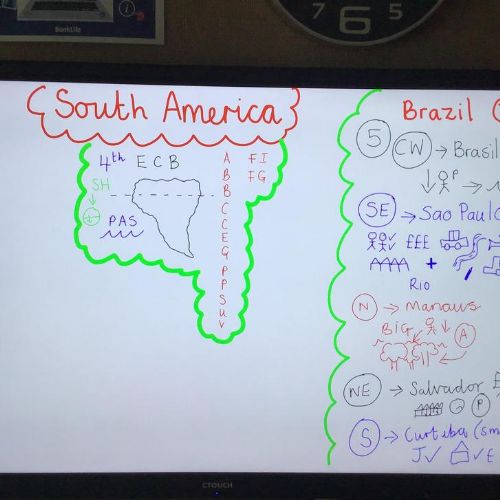 BankLife
7 6 5
South America
4th E C B
SH
PAS
A
B
B
C
C
E
G
P
P
S
U
V
FI
FG
Brazil
5 CW → Brasil
P
SE → Sao Paulo
£££
+
RIO
N → Manaus
BIG
A
NE → Salvador £
P
S → Curtiba (sm
J ✓ ✓ £
CTOUCH